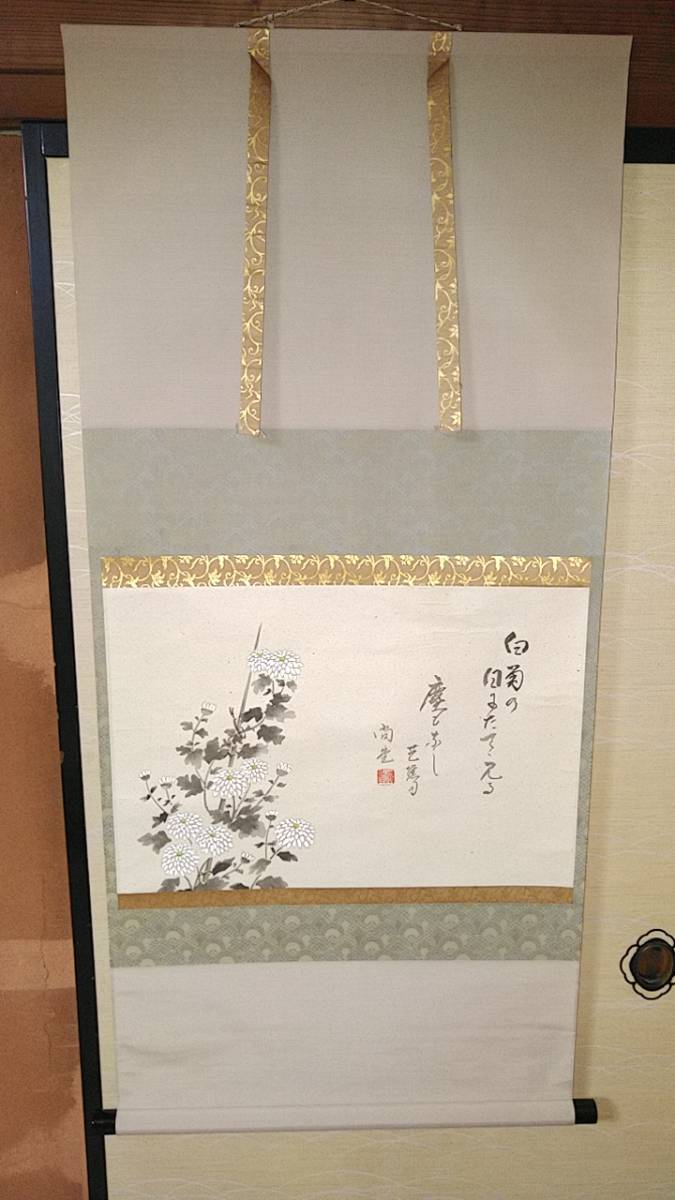 白菊の
目にたてゝ見る
塵もなし
芭蕉句
尚堂